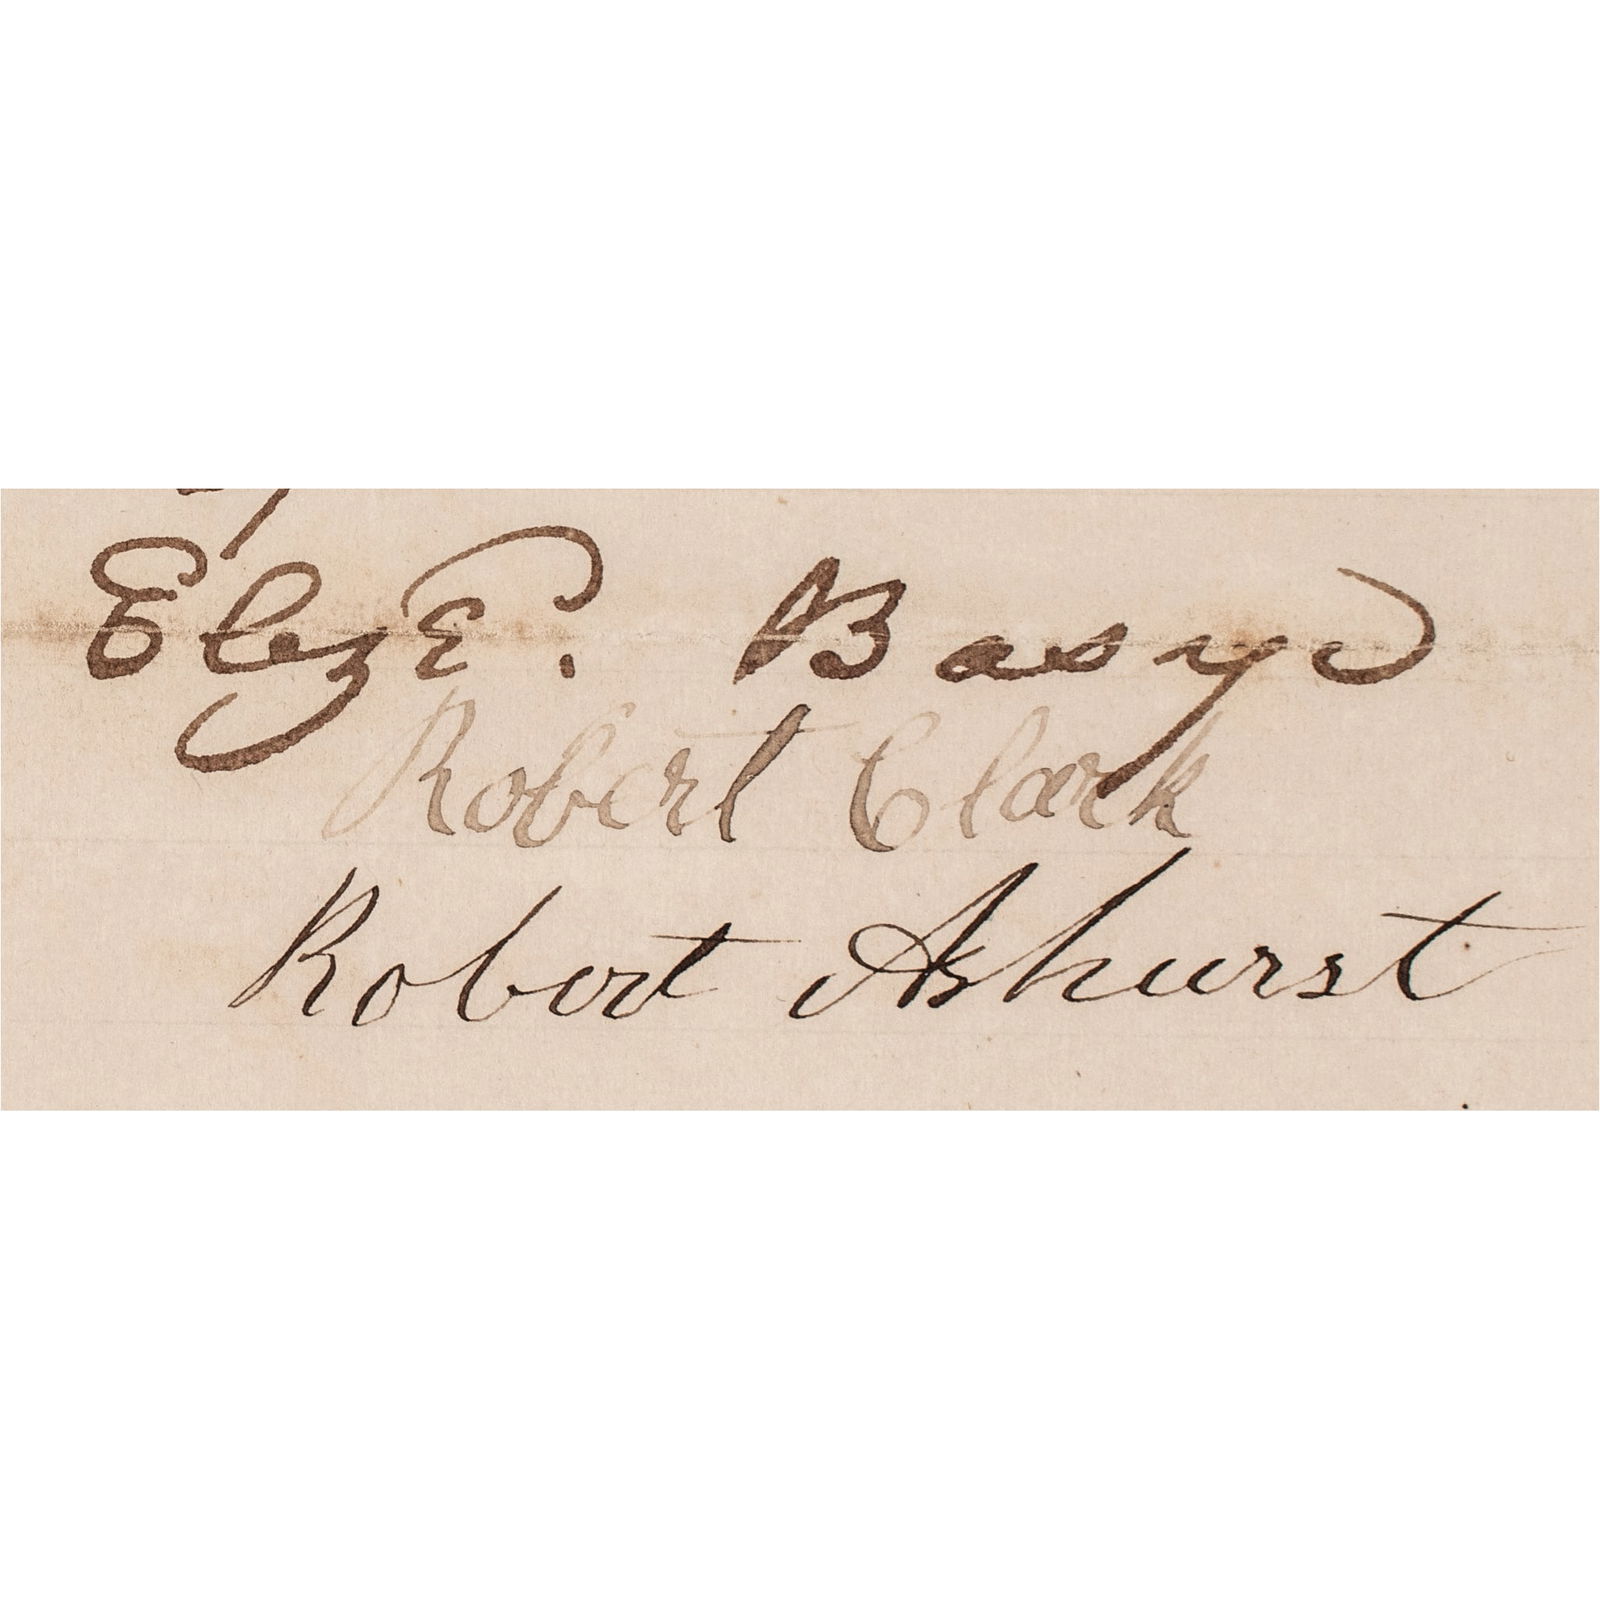 Elizᴱ. Basye
Robert Clark
Robert Ashurst